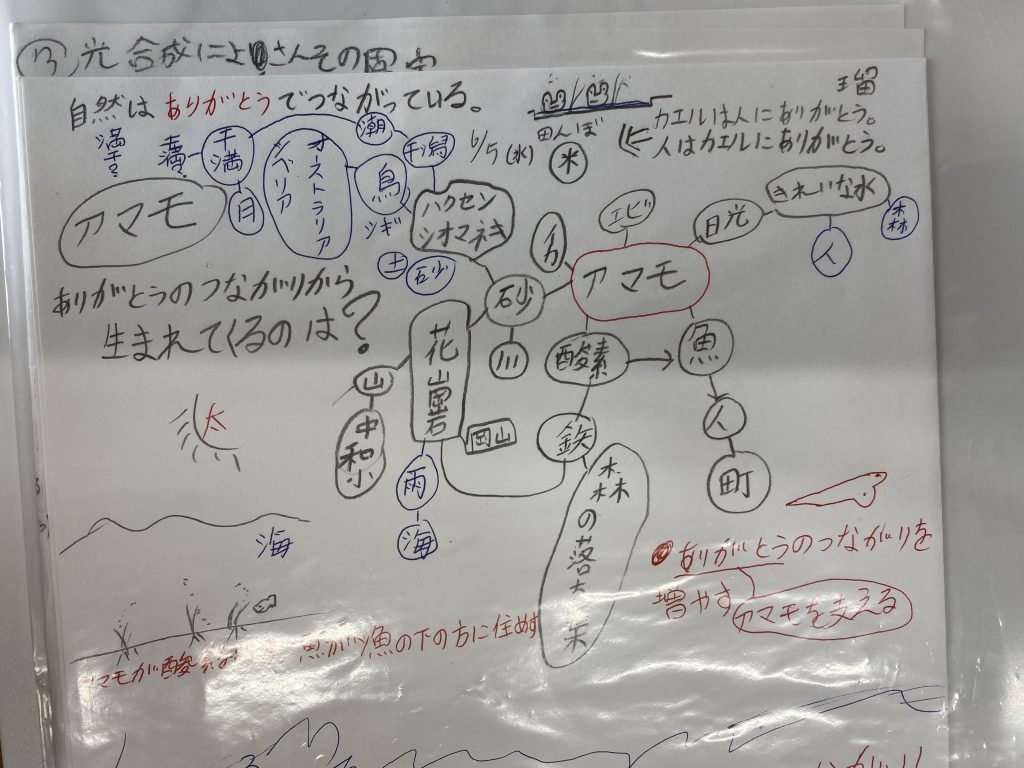 光合成によりさんその
自然はありがとうでつながっている。
瑠
カエルは人にありがとう。
人はカエルにありがとう。
田んぼ
米
6/5(水)
満干
干満
潮
干潟
日
オーストラリア
シベリア
鳥
シギ
ハクセン
シオマネキ
アマモ
土
砂
イカ
エビ
アマモ
日光
きれいな水
人
森
ありがとうのつながりから
生まれてくるのは?
砂
川
花崗岩
山
中和小
岡山
雨
海
酸素
魚
人
町
鉄
森の落ち
太
海
ありがとうのつながりを
増やす アマモを支える
マモが酸
魚の下の方に住めず